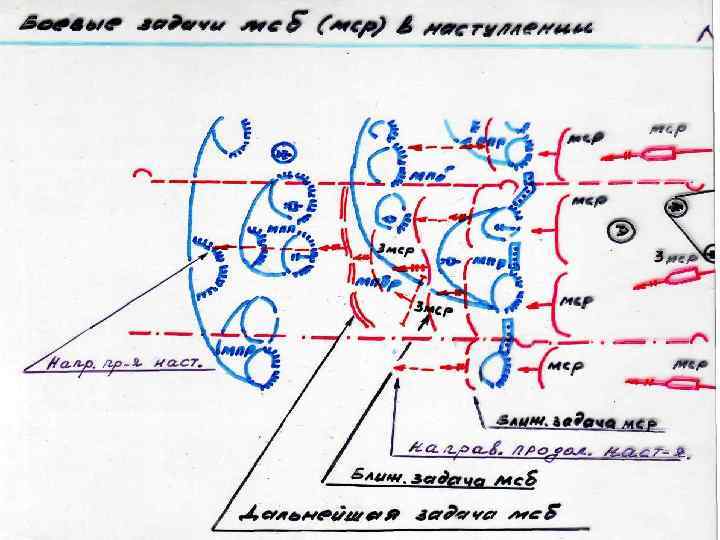 Боевые задачи мсб (мср) в наступлении
мср
мср
мпб
мср
мпр
3мср
мпр
3мср
мпбр
3мср
мср
мпр
мср
мср
Напр. пр-я наст.
Ближ. задача мср
Направ. продол. наст-я.
Ближ. задача мсб
Дальнейшая задача мсб